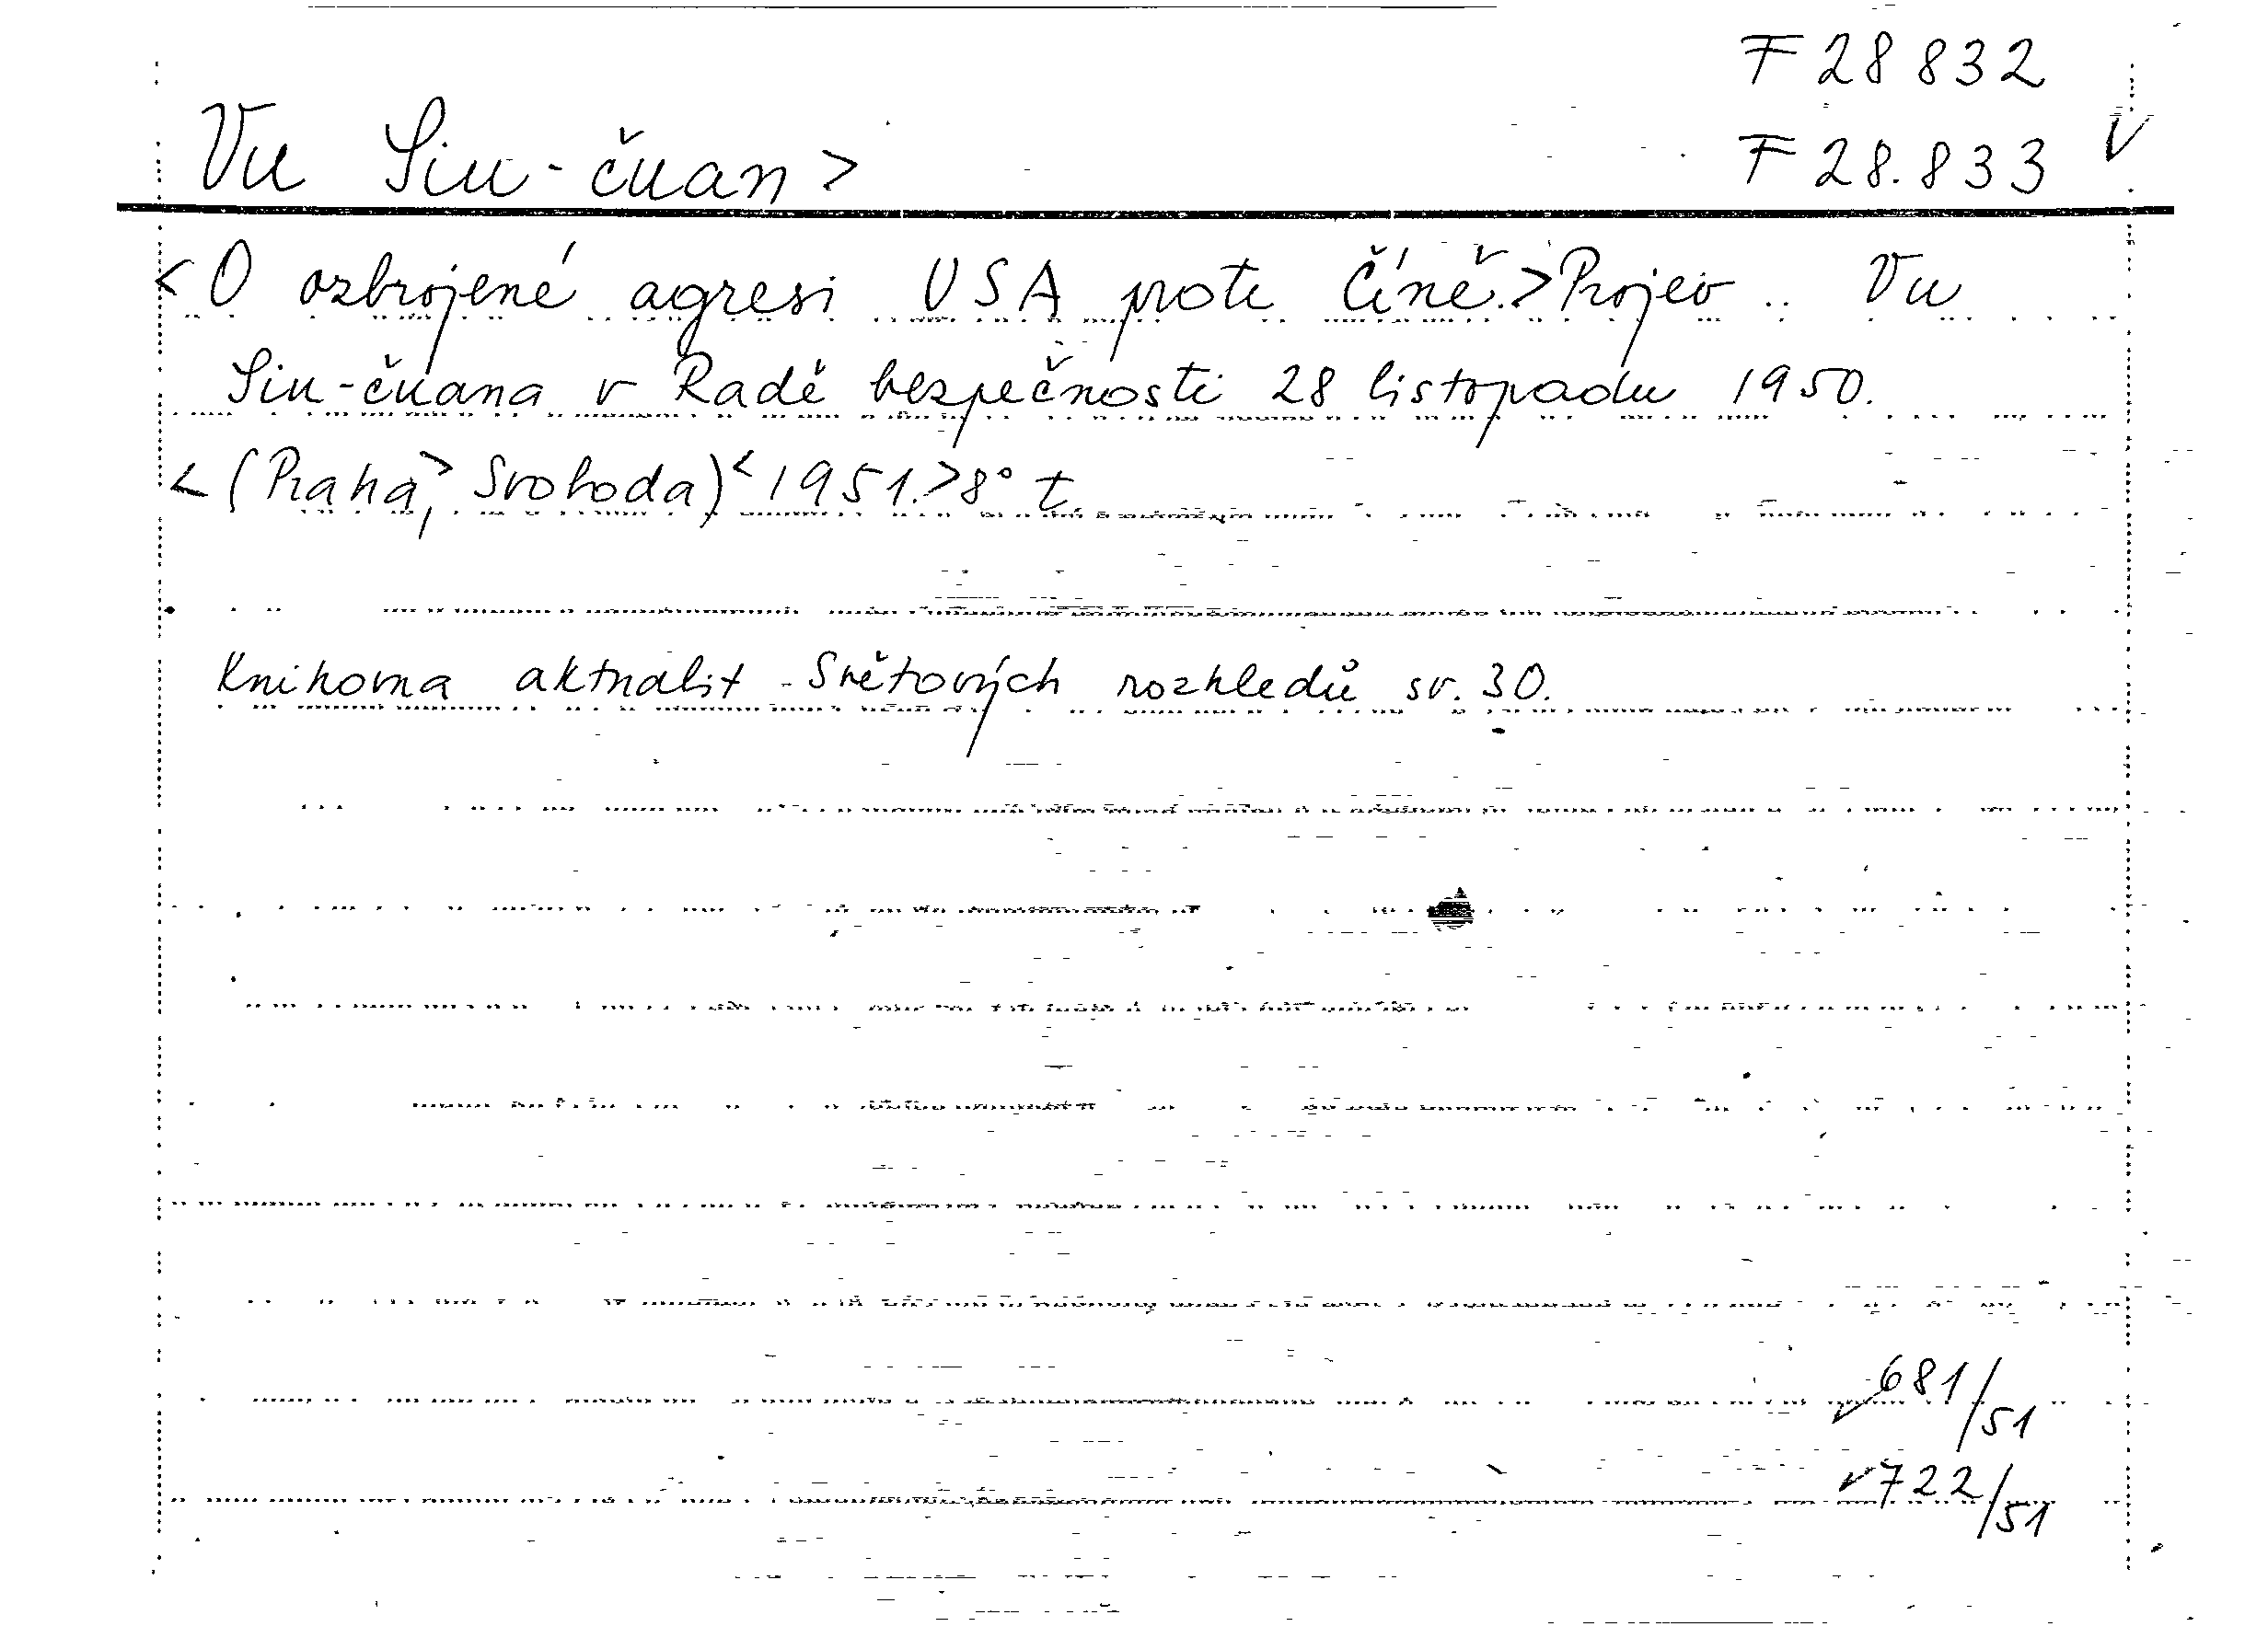 F 28 832
Vu Siu-čuan >
F 28.833 V
< O ozbrojené agresi USA proti Číně.> Projev .. Vu
Siu-čuana v Radě bezpečnosti 28 listopadu 1950.
< (Praha,> Svoboda) < 1951.> 8° t
Knihovna aktualit Světových rozhledů sv. 30.
681/51
722/51